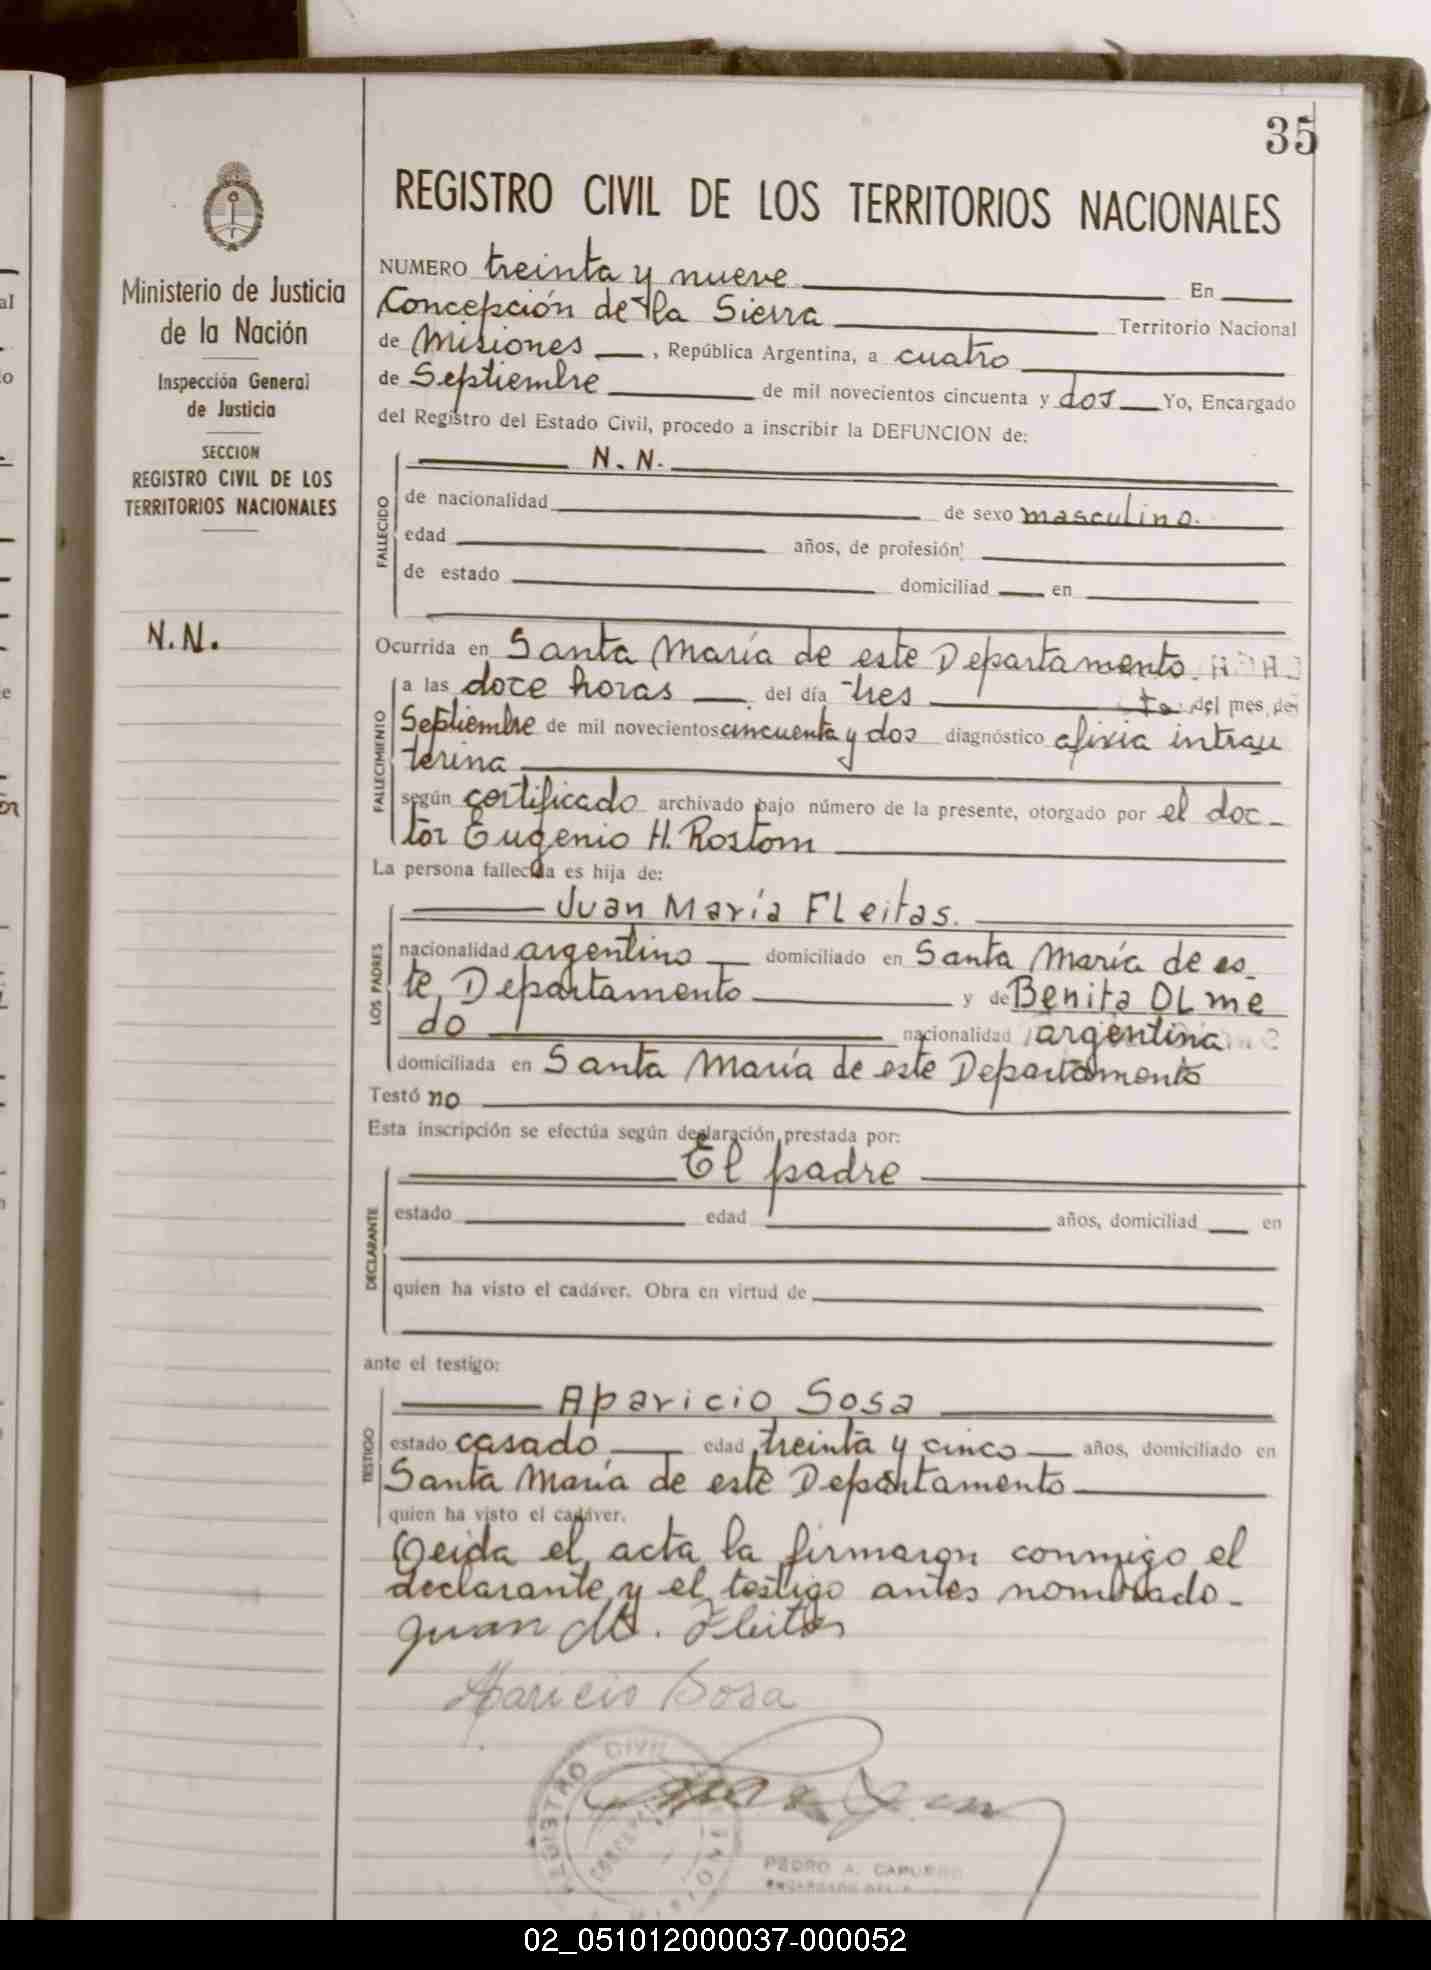 35
REGISTRO CIVIL DE LOS TERRITORIOS NACIONALES
Ministerio de Justicia
de la Nación
Inspección General
de Justicia
SECCION
REGISTRO CIVIL DE LOS
TERRITORIOS NACIONALES
N.N.
NUMERO treinta y nueve En
Concepción de la Sierra Territorio Nacional
de Misiones, República Argentina, a cuatro
de Septiembre de mil novecientos cincuenta y dos Yo, Encargado
del Registro del Estado Civil, procedo a inscribir la DEFUNCION de:
N. N.
FALLECIDO
de nacionalidad de sexo masculino.
edad años, de profesión
de estado domiciliad en
Ocurrida en Santa María de este Departamento.
FALLECIMIENTO
a las doce horas del día tres del mes de
Septiembre de mil novecientos cincuenta y dos diagnóstico afixia intrau
terina
según certificado archivado bajo número de la presente, otorgado por el doc-
tor Eugenio H. Rostom
La persona fallecida es hija de:
LOS PADRES
Juan María FLeitas.
nacionalidad argentino domiciliado en Santa María de es-
te Departamento y de Benita OLme
do nacionalidad argentina
domiciliada en Santa María de este Departamento
Testó no
Esta inscripción se efectúa según declaración prestada por:
DECLARANTE
El padre
estado edad años, domiciliad en
quien ha visto el cadáver. Obra en virtud de
ante el testigo:
TESTIGO
Aparicio Sosa
estado casado edad treinta y cinco años, domiciliado en
Santa María de este Departamento
quien ha visto el cadáver.
Leida el acta la firmaron conmigo el
declarante y el testigo antes nombrado-
Juan M. Fleitas
Aparicio Sosa
REGISTRO CIVIL
PEDRO A. CAPURRO
02_051012000037-000052